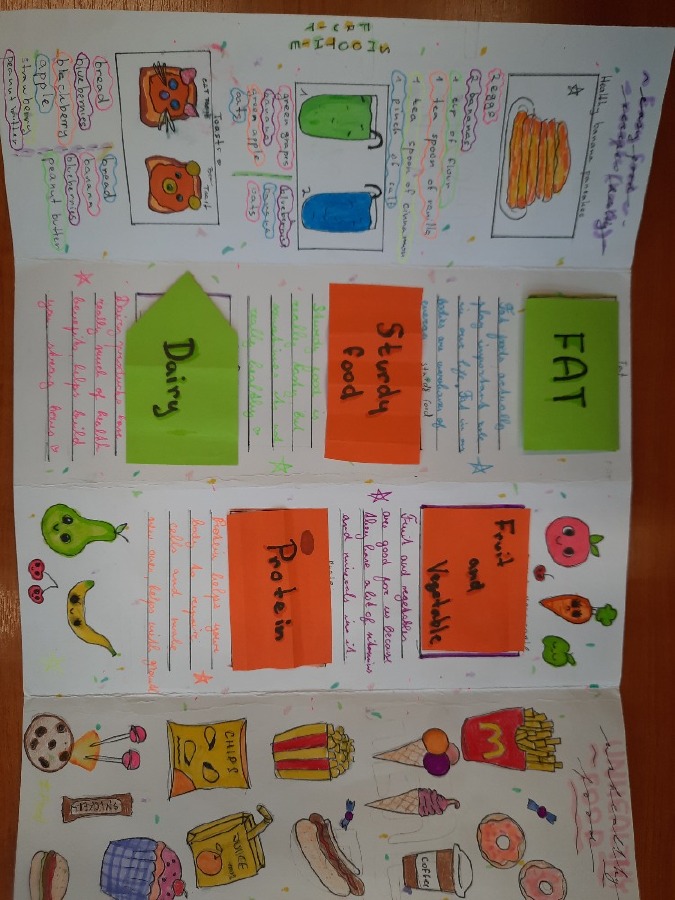 Easy food
recipes (healthy)
Healthy banana pancakes
2 eggs
2 bananas
1 cup of flour
1 tea spoon of vanilla
1 tea spoon of cinnamon
1 pinch of salt
FRUIT
SMOOTHIE
1
2
green graps
banana
green apple
oats
blueberries
banana
oats
Toasts
cat toast
bread
blueberries
blackberry
apple
strawberry
peanut butter
bread
banana
blueberries
peanut butter
FAT
Fat foods actually
play important role
in our life, Fat in our
bodies are
energy
Sturdy
food
Sturdy food is
really tasty but
sometimes its not
really healthy
Dairy
Dairy products have
really much of health
benefits, helps build
you strong bones
Fruit
and
Vegetable
Fruit and vegetables
are good for us because
they have a lot of vitamins
and minerals in it
Protein
Protein helps your
body to repair
cells and make
new one, helps with
UNHEALTHY
FOOD
M
COFFEE
CHIPS
JUICE
SNICKERS